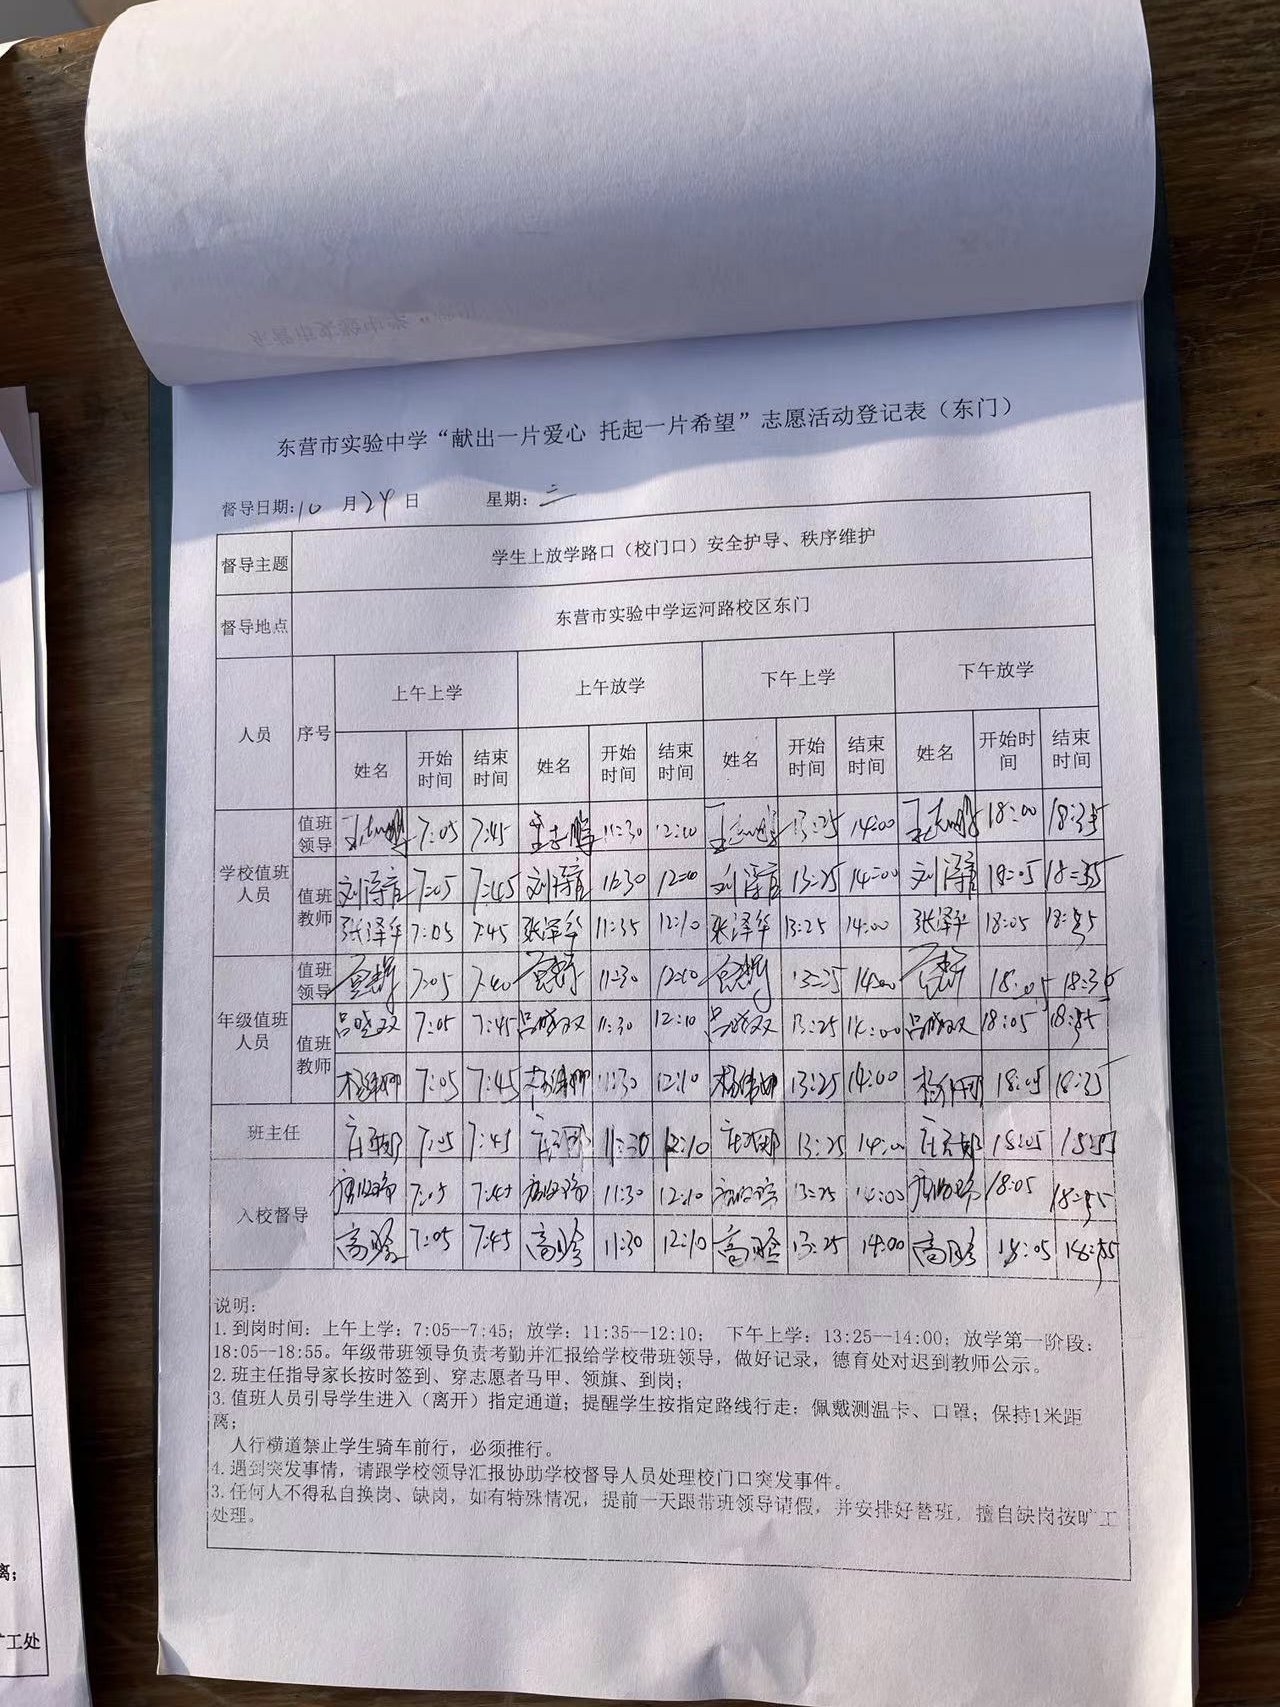 东营市实验中学“献出一片爱心 托起一片希望”志愿活动登记表（东门）
督导日期: 10 月 24 日 星期: 三
督导主题 学生上放学路口（校门口）安全护导、秩序维护
督导地点 东营市实验中学运河路校区东门
人员 序号 上午上学 上午放学 下午上学 下午放学
姓名 开始时间 结束时间 姓名 开始时间 结束时间 姓名 开始时间 结束时间 姓名 开始时间 结束时间
学校值班人员 值班领导 王志鹏 7:05 7:45 王志鹏 11:30 12:10 王志鹏 13:25 14:00 王志鹏 18:00 18:35
值班教师 7:05 7:45 11:30 12:00 13:25 14:00 18:05 18:35
张泽华 7:05 7:45 张泽华 11:35 12:10 张泽华 13:25 14:00 张泽华 18:05 18:55
年级值班人员 值班领导 7:05 7:40 11:30 12:10 13:25 14:00 18:05 18:35
值班教师 吕晓双 7:05 7:45 吕晓双 11:30 12:10 吕晓双 13:25 14:00 吕晓双 18:05 18:55
杨伟娜 7:05 7:45 杨伟娜 11:30 12:10 杨伟娜 13:25 14:00 杨伟娜 18:05 18:35
班主任 7:05 7:45 11:30 12:10 13:25 14:00 18:05
入校督导 7:05 7:45 11:30 12:10 13:25 14:00 18:05 18:55
高 7:05 7:45 高 11:30 12:10 高 13:25 14:00 高 18:05 18:55
说明:
1.到岗时间: 上午上学: 7:05--7:45; 放学: 11:35--12:10; 下午上学: 13:25--14:00; 放学第一阶段:
18:05--18:55。年级带班领导负责考勤并汇报给学校带班领导，做好记录，德育处对迟到教师公示。
2.班主任指导家长按时签到、穿志愿者马甲、领旗、到岗;
3.值班人员引导学生进入（离开）指定通道; 提醒学生按指定路线行走; 佩戴测温卡、口罩; 保持1米距
离;
人行横道禁止学生骑车前行，必须推行。
4.遇到突发事情，请跟学校领导汇报协助学校督导人员处理校门口突发事件。
3.任何人不得私自换岗、缺岗，如有特殊情况，提前一天跟带班领导请假，并安排好替班，擅自缺岗按旷工
处理。
离;
旷工处